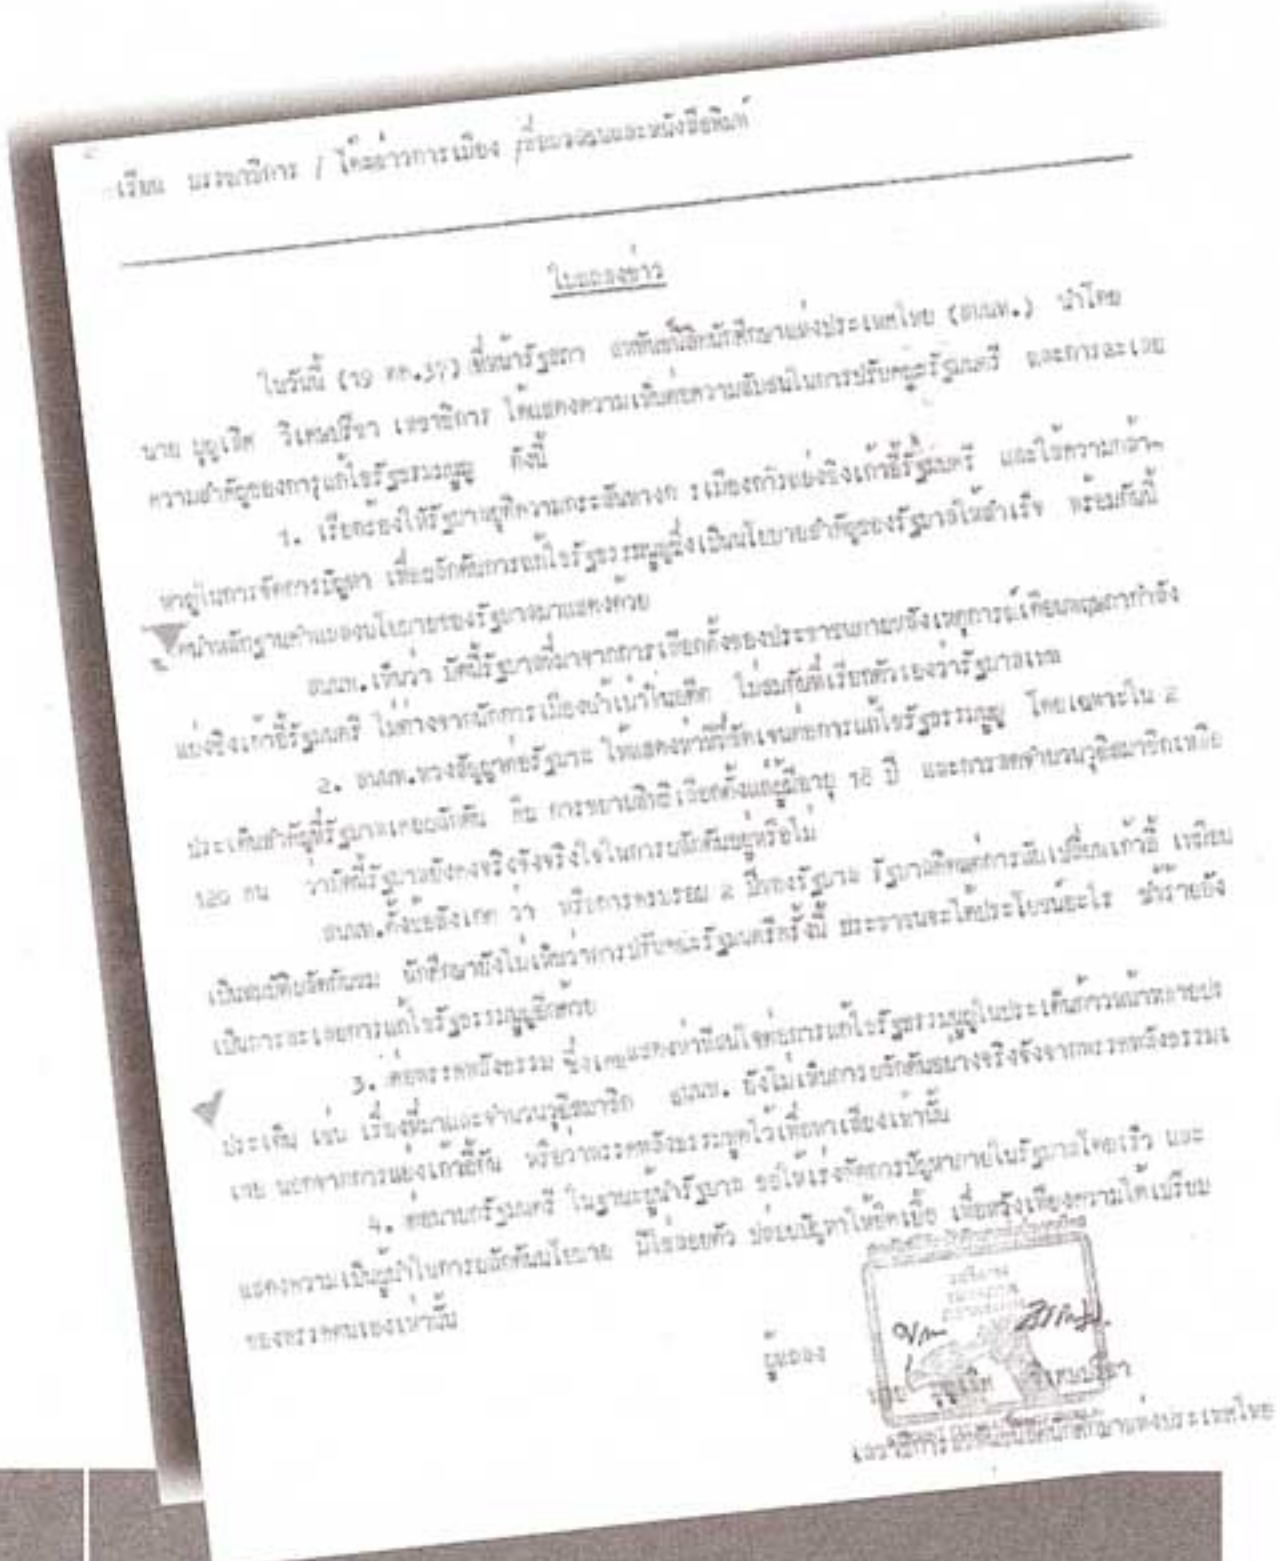 เรียน บรรณาธิการ / โต๊ะข่าวการเมือง /สื่อมวลชนและหนังสือพิมพ์
ใบแถลงข่าว
ในวันนี้ (19 ตค.37) ที่หน้ารัฐสภา สหพันธ์นิสิตนักศึกษาแห่งประเทศไทย (สนนท.) นำโดย
นาย บุญเลิศ วิเศษปรีชา เลขาธิการ ได้แสดงความเห็นต่อความสับสนในการปรับคณะรัฐมนตรี และการละเลย
ความสำคัญของการแก้ไขรัฐธรรมนูญ ดังนี้
1. เรียกร้องให้รัฐบาลยุติความกระสันทางการเมืองการแย่งชิงเก้าอี้รัฐมนตรี และใช้ความกล้า
หาญในการจัดการปัญหา เพื่อผลักดันการแก้ไขรัฐธรรมนูญซึ่งเป็นนโยบายสำคัญของรัฐบาลให้สำเร็จ พร้อมกันนี้
ได้นำหลักฐานคำแถลงนโยบายของรัฐบาลมาแสดงด้วย
สนนท.เห็นว่า บัดนี้รัฐบาลที่มาจากการเลือกตั้งของประชาชนภายหลังเหตุการณ์เดือนพฤษภากำลัง
แย่งชิงเก้าอี้รัฐมนตรี ไม่ต่างจากนักการเมืองน้ำเน่าในอดีต ไม่สมกับที่เรียกตัวเองว่ารัฐบาลเทพ
2. สนนท.ทวงสัญญาต่อรัฐบาล ให้แสดงท่าทีที่ชัดเจนต่อการแก้ไขรัฐธรรมนูญ โดยเฉพาะใน 2
ประเด็นสำคัญที่รัฐบาลเคยผลักดัน คือ การขยายสิทธิเลือกตั้งแก่ผู้มีอายุ 18 ปี และการลดจำนวนวุฒิสมาชิกเหลือ
120 คน ว่าบัดนี้รัฐบาลยังคงจริงจังจริงใจในการผลักดันอยู่หรือไม่
สนนท.ตั้งข้อสังเกต ว่า หรือการครบรอบ 2 ปีของรัฐบาล รัฐบาลคิดแต่การสับเปลี่ยนเก้าอี้ เหมือน
เป็นสมบัติผลัดกันชม นักศึกษายังไม่เห็นว่าการปรับคณะรัฐมนตรีครั้งนี้ ประชาชนจะได้ประโยชน์อะไร ซ้ำร้ายยัง
เป็นการละเลยการแก้ไขรัฐธรรมนูญอีกด้วย
3. ต่อพรรคพลังธรรม ซึ่งเคยแสดงท่าทีสนใจต่อการแก้ไขรัฐธรรมนูญในประเด็นก้าวหน้าหลายประ
ประเด็น เช่น เรื่องที่มาและจำนวนวุฒิสมาชิก สนนท. ยังไม่เห็นการผลักดันอย่างจริงจังจากพรรคพลังธรรมเ
เลย นอกจากการแย่งเก้าอี้กัน หรือว่าพรรคพลังธรรมพูดไว้เพื่อหาเสียงเท่านั้น
4. ต่อนายกรัฐมนตรี ในฐานะผู้นำรัฐบาล ขอให้เร่งจัดการปัญหาภายในรัฐบาลโดยเร็ว และ
แสดงความเป็นผู้นำในการผลักดันนโยบาย มิใช่ลอยตัว ปล่อยปัญหาให้ยืดเยื้อ เพื่อหวังเพียงความได้เปรียบ
ของพรรคตนเองเท่านั้น
ผู้แถลง
นาย บุญเลิศ วิเศษปรีชา
เลขาธิการสหพันธ์นิสิตนักศึกษาแห่งประเทศไทย